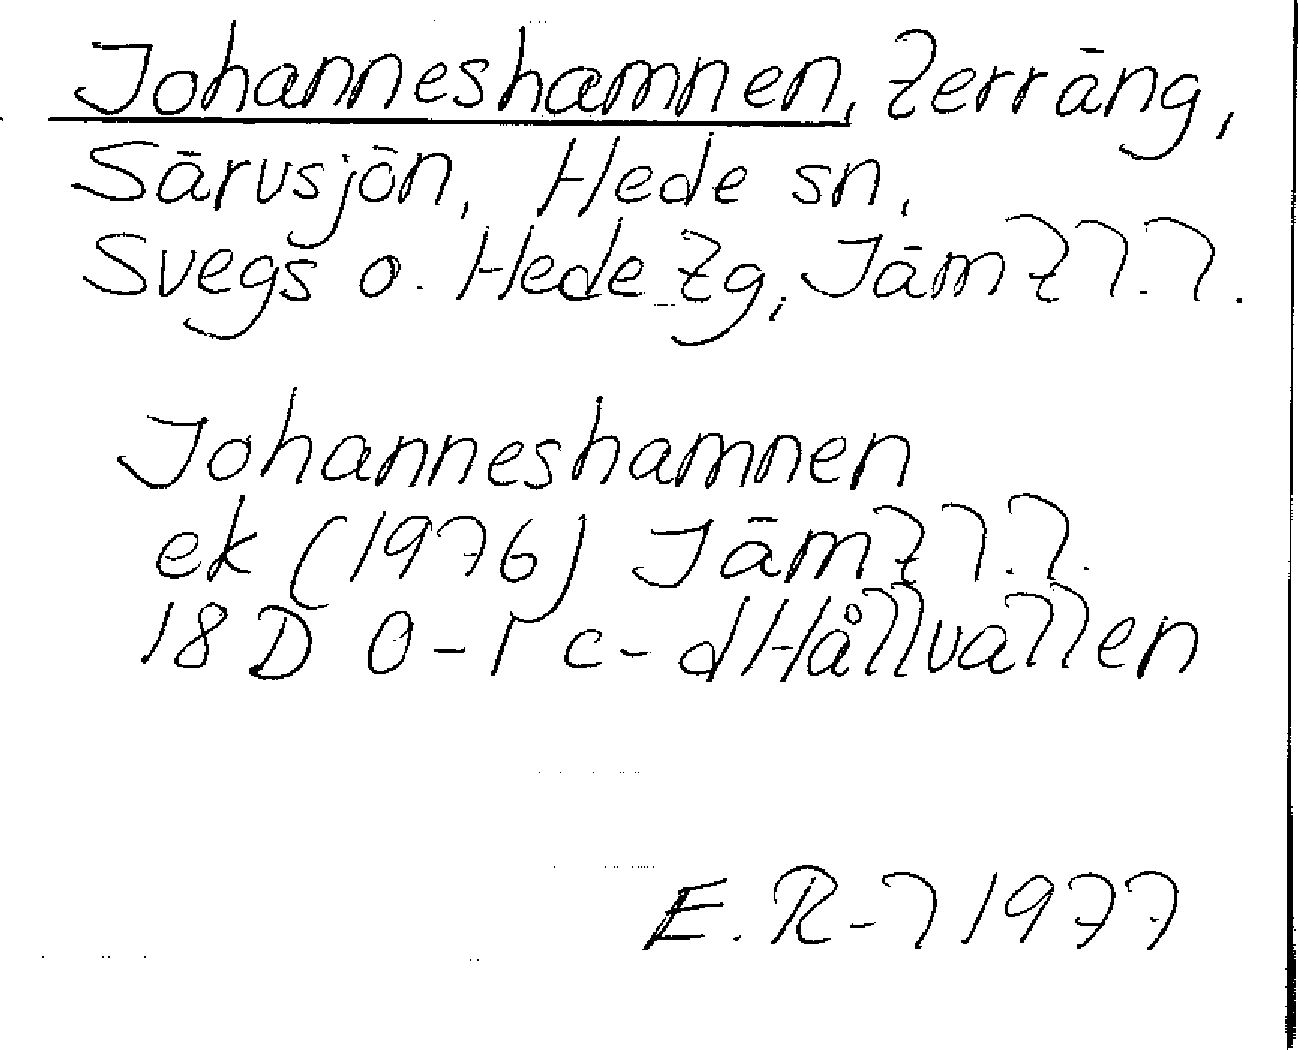 Johanneshamnen, terräng,
Särvsjön, Hede sn,
Svegs o. Hede tg, Jämtl.l.
Johanneshamnen
ek (1976) Jämtl.l.
18D 0-1 c-d Hållvallen
E. R-l 1977